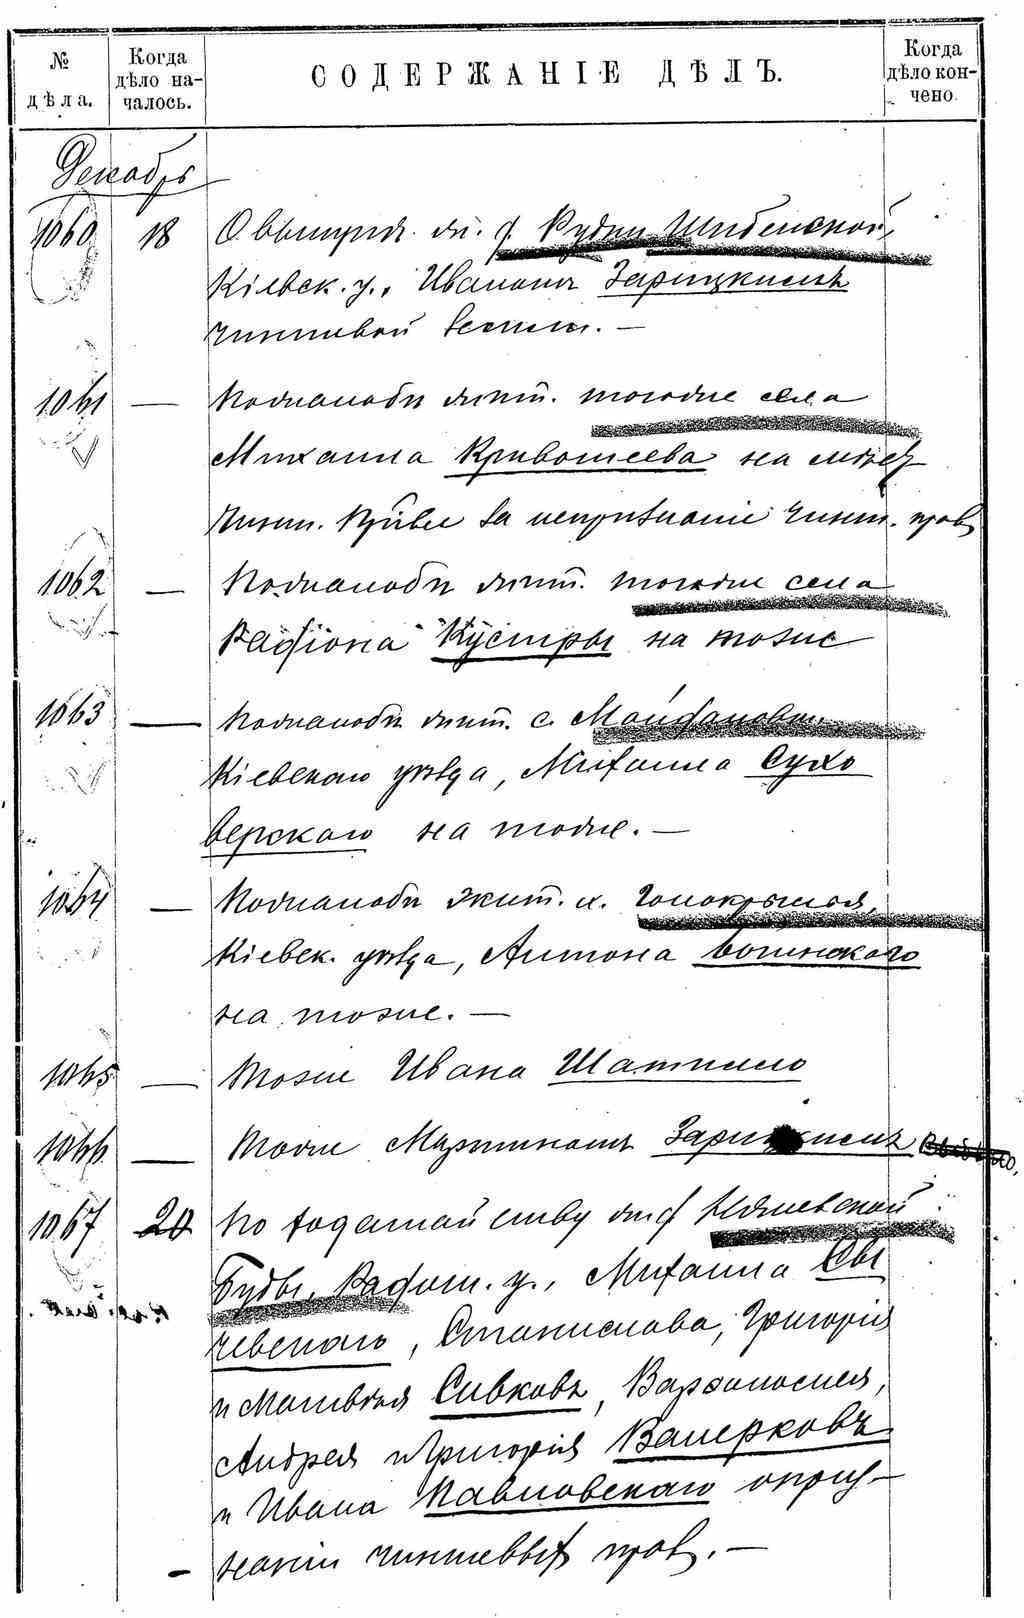 № дѣла.
Когда дѣло на-чалось.
СОДЕРЖАНІЕ ДѢЛЪ.
Когда дѣло кон-чено.
Декабрь
1060 18 О выкупѣ д. Рудни Шибенской,
Кіевск. у., Иваномъ Зарицкимъ
чиншевой земли. —
1061 — По жалобѣ жит. тогоже села
Михаила Кривошеева на
Чинш. Прис. за непризнаніе чинш. прав
1062 — По жалобѣ жит. тогоже села
Радіона Кустры на тоже
1063 — По жалобѣ жит. с. Майдановки,
Кіевскаго уѣзда, Михаила Сухо
верскаго на тоже. —
1064 — По жалобѣ жит. х.
Кіевск. уѣзда, Антона
на тоже. —
1065 — Тоже Ивана Шатило
1066 — Тоже Мартиномъ Зарицкимъ
1067 20 По ходатайству
Буды, Радом. у., Михаила Сы
чевскаго, Станислава, Григорія
и Матвѣя Сивковъ, Варфоломея,
Андрея и Григорія Валерковъ
и Ивана Павловскаго о приз-
наніи чиншевыхъ прав. —